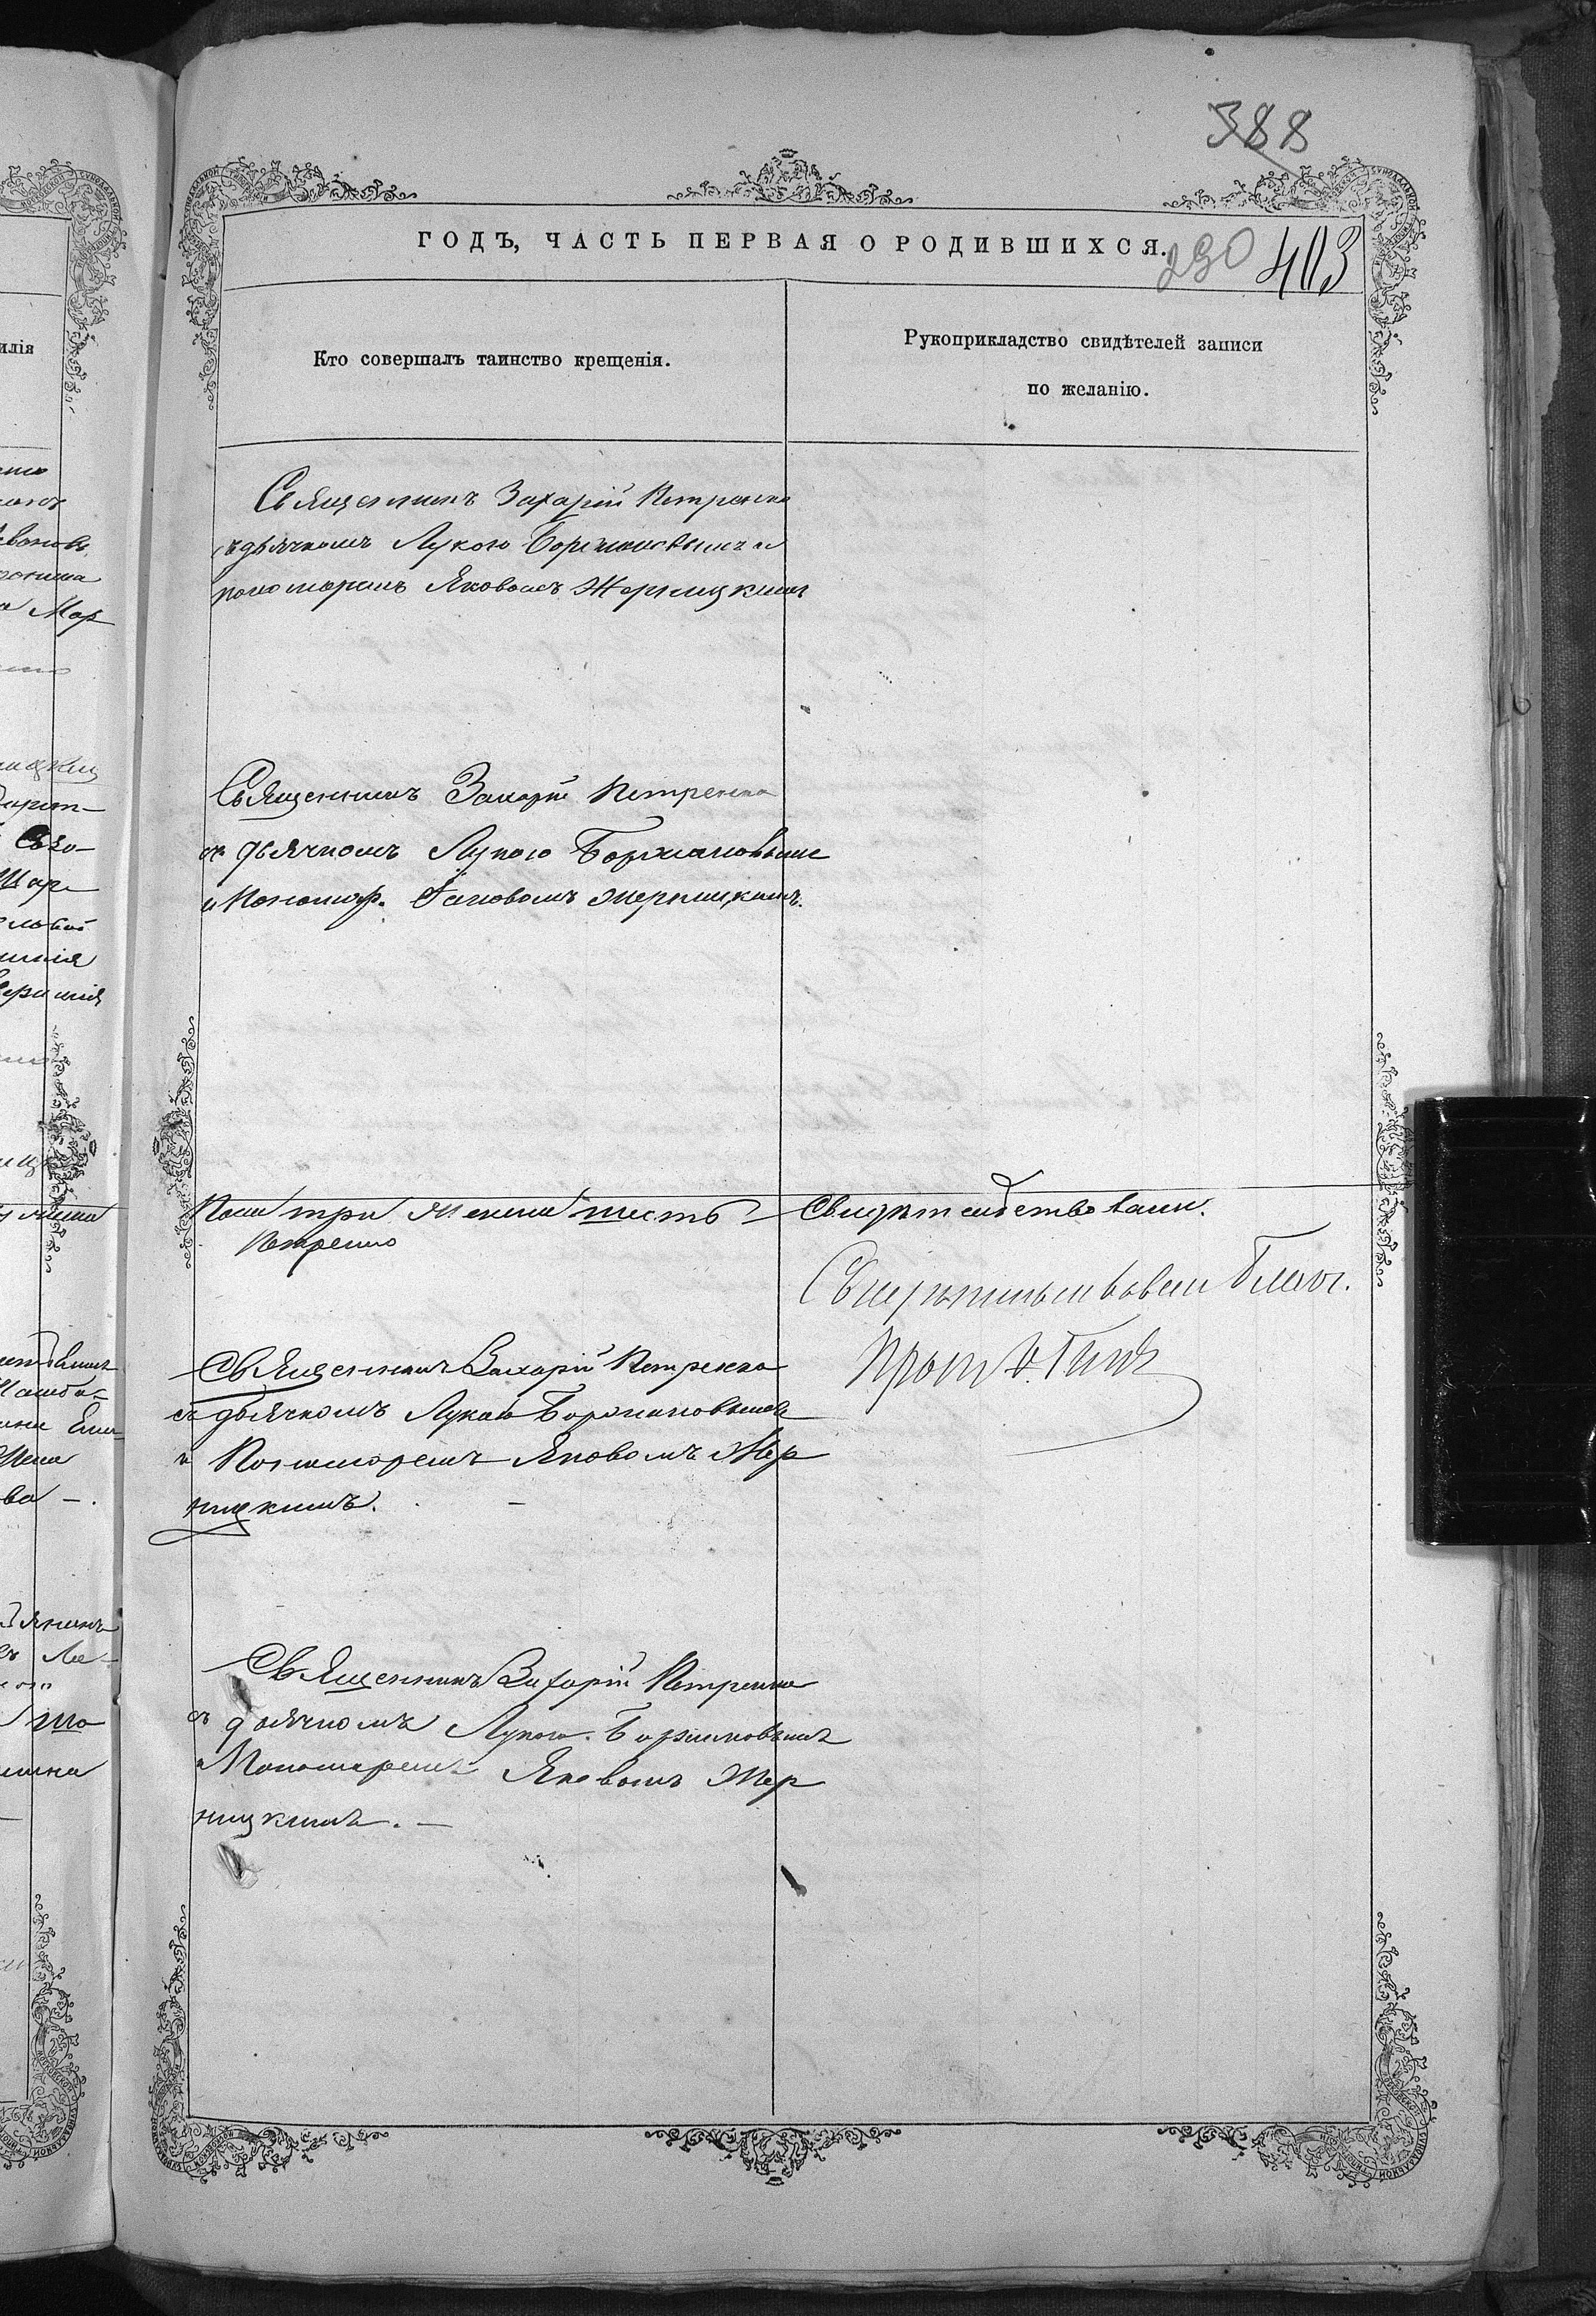 388
ГОДЪ, ЧАСТЬ ПЕРВАЯ О РОДИВШИХСЯ.
290 403
Кто совершалъ таинство крещенія.
Рукоприкладство свидѣтелей записи
по желанію.
Священникъ Захарій Петренко
съ дьячкомъ Лукою Боржаковымъ и
пономаремъ Яковомъ Жерницкимъ
Священникъ Захарій Петренко
съ дьячкомъ Лукою Боржаковымъ
и Пономар. Яковомъ Жерницкимъ.
три женска шесть Свидѣтельствовали.
Петренко
Свидѣтельствовалъ Благоч.
Прот.
Священникъ Захарій Петренко
съ дьячкомъ Лукою Боржаковымъ
и Пономаремъ Яковомъ Жер
ницкимъ.
Священникъ Захарій Петренко
съ дьячкомъ Лукою Боржаковымъ
и Пономаремъ Яковомъ Жер
ницкимъ. —